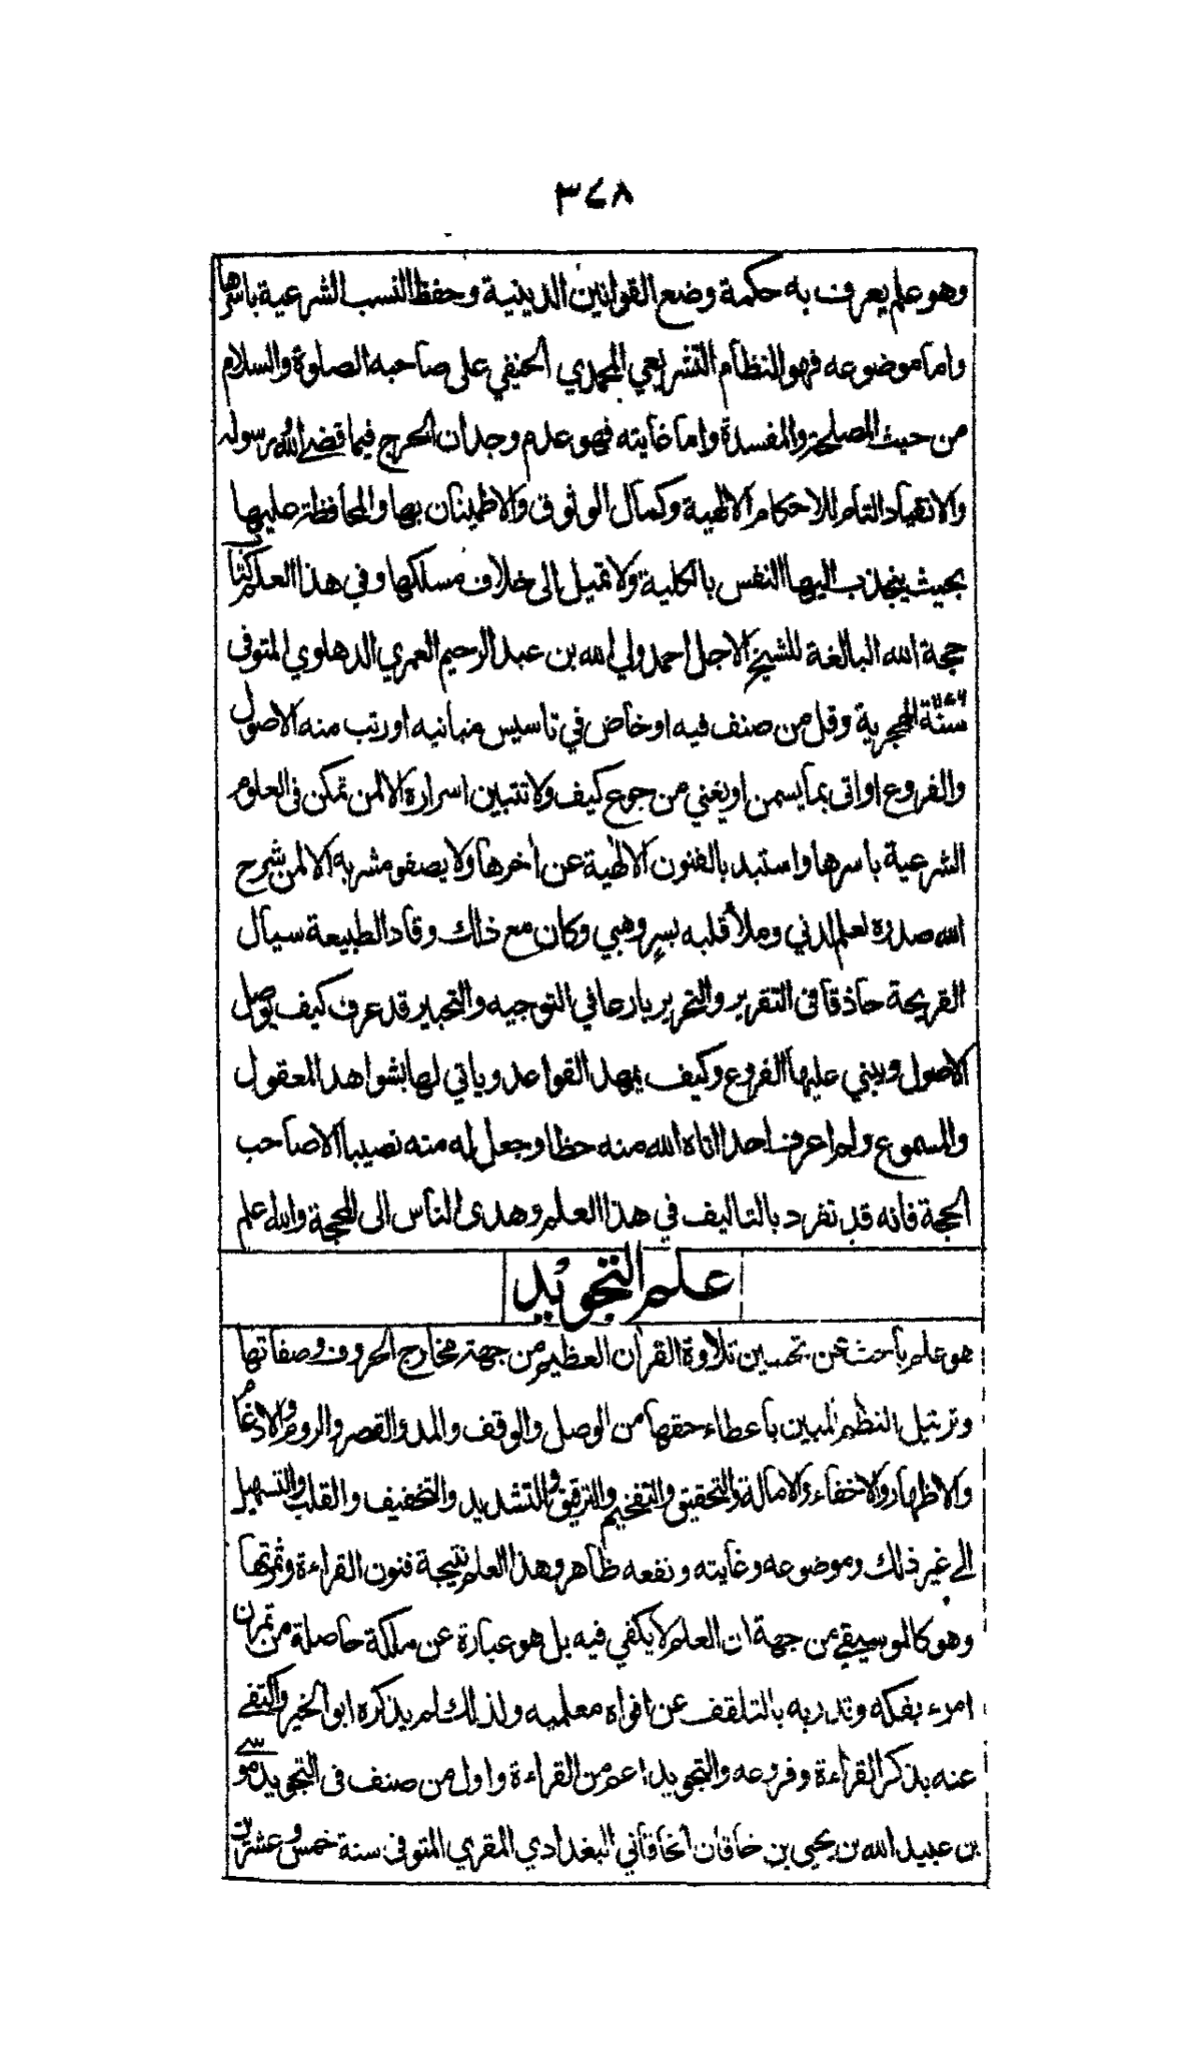 ٣٤٨
وهو علم يعرف به حكمة وضع القوانين الدينية وحفظ النسب الشرعية باسرها
واما موضوعه فهو النظام التشريعي المحمدي الحنيفي على صاحبه الصلوة والسلام
من حيث المصلحة والمفسدة واما غايته فهو عدم وجدان الحرج فيما قضى الله ورسوله
والانقياد التام للاحكام الالهية وكمال الوثوق والاطمينان بها والمحافظة عليها
بحيث ينجذب اليها النفس بالكلية ولا تميل الى خلاف مسلكها وفي هذا العلم كتاب
حجة الله البالغة للشيخ الاجل احمد ولي الله بن عبد الرحيم العمري الدهلوي المتوفى
سنة الهجرية وقل من صنف فيه او خاض في تاسيس مبانيه او رتب منه الاصول
والفروع او اتى بما يسمن او يغني من جوع كيف ولا تتبين اسراره الا لمن تمكن فى العلوم
الشرعية باسرها واستبد بالفنون الالهية عن اخرها ولا يصفو مشربه الا لمن شرح
الله صدره لعلم لدني وملأ قلبه بسر وهبي وكان مع ذلك وقاد الطبيعة سيال
القريحة حاذقا فى التقرير والتحرير بارعا في التوجيه والتحبير قد عرف كيف يوصل
الاصول ويبني عليها الفروع وكيف يمهد القواعد وياتي لها بشواهد المعقول
والمسموع ولم اعرف احدا اتاه الله منه حظا وجعل له منه نصيبا الا صاحب
الحجة فانه قد تفرد بالتاليف في هذا العلم وهدى الناس الى المحجة والله علم
علم التجويد
هو علم باحث عن تحسين تلاوة القران العظيم من جهة مخارج الحروف وصفاتها
وترتيل النظم المبين باعطاء حقها من الوصل والوقف والمد والقصر والروم والادغام
والاظهار والاخفاء والامالة والتحقيق والتفخيم والترقيق والتشديد والتخفيف والقلب والتسهيل
الى غير ذلك وموضوعه وغايته ونفعه ظاهر وهذا العلم نتيجة فنون القراءة وثمرتها
وهو كالموسيقى من جهة ان العلم لا يكفي فيه بل هو عبارة عن ملكة حاصلة من تمرن
امرء بفكه وتدربه بالتلقف عن افواه معلميه ولذلك لم يذكره ابو الخير واكتفى
عنه بذكر القراءة وفروعه والتجويد اعم من القراءة واول من صنف فى التجويد موسى
بن عبيد الله بن يحيى بن خاقان الخاقاني البغدادي المقري المتوفى سنة خمس وعشرين